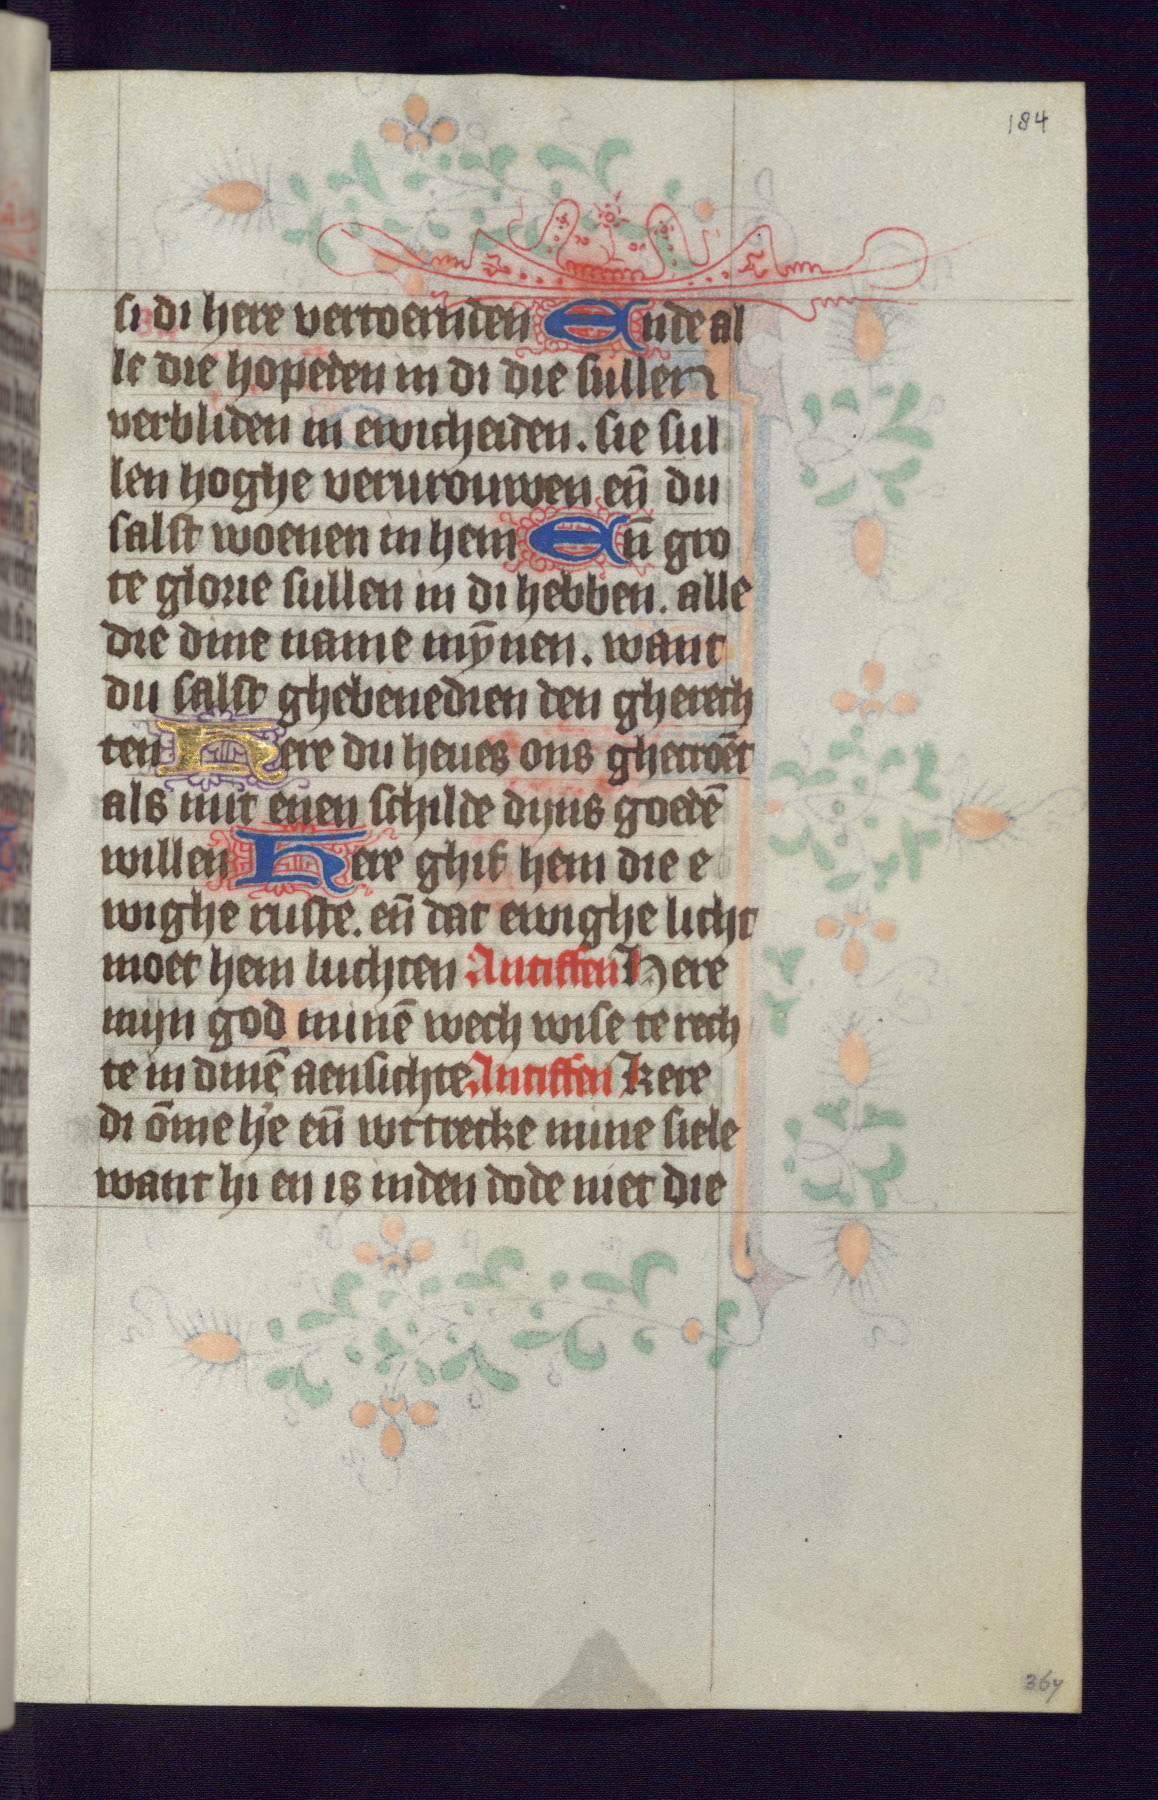 184
si di here vertoernden Ende al
le die hopeden in di die sullen
verbliden in ewicheiden. sie sul
len hoghe vervrouwen en̄ du
salst woenen in hem En̄ gro
te glorie sullen in di hebben. alle
die dine name mȳnen. want
du salst ghebenedien den gherech
ten Here du heues ons ghecroēt
als mit enen schilde dijns goedē
willen Here ghif hem die e
wighe ruste. en̄ dat ewighe licht
moet hem luchten Antiffen Here
mijn god minē wech wise te rech
te in dinē aensichte Antiffen Kere
di ōme h'e en̄ wttrecke mine siele
want hi en is inden dode niet die